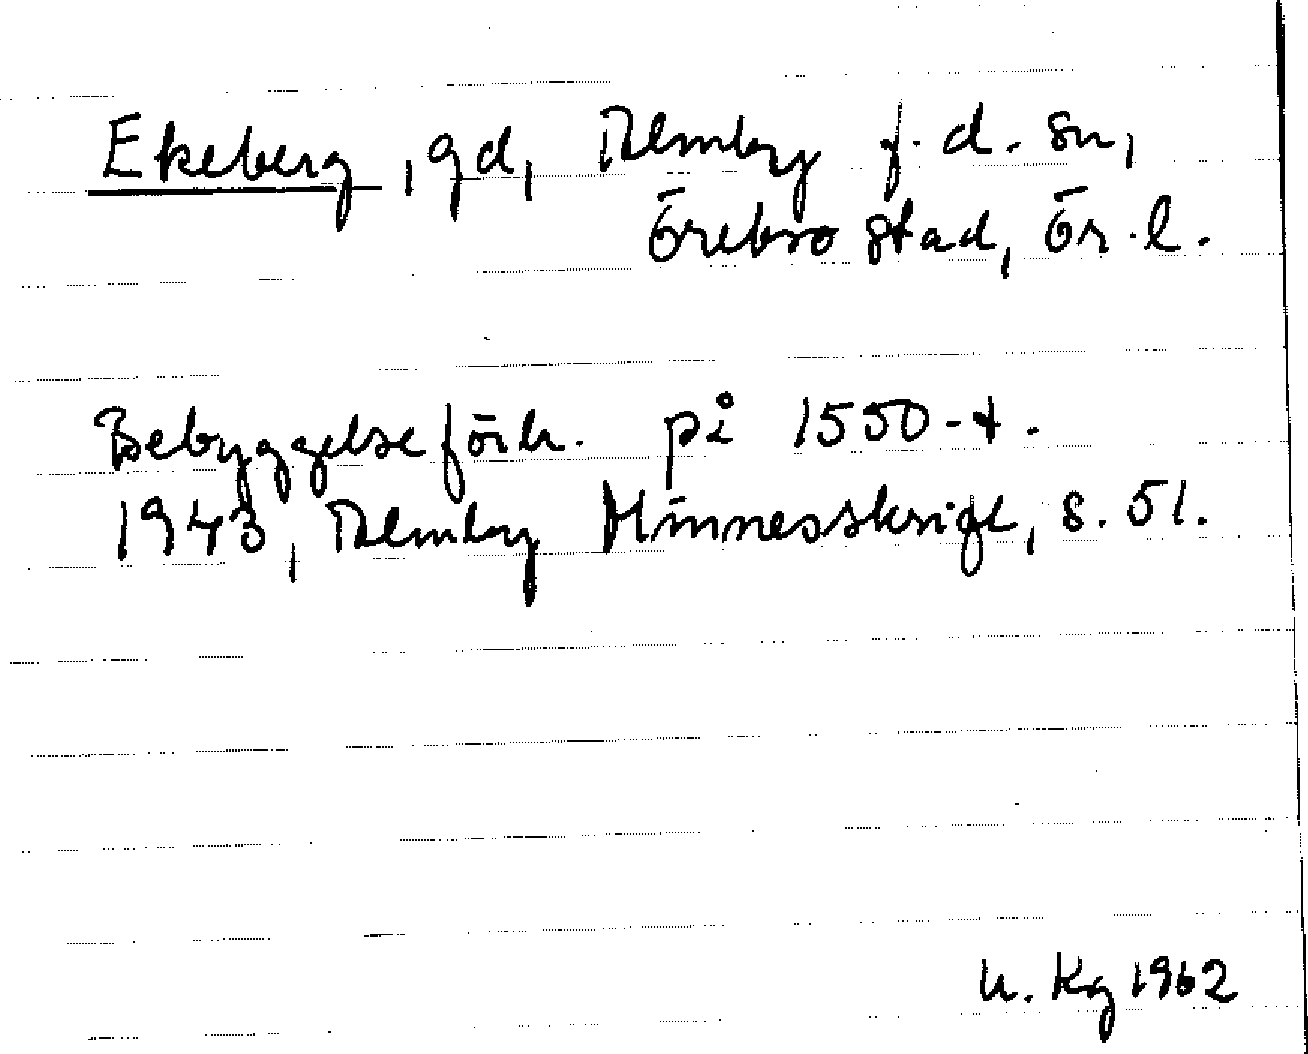 Ekeberg, gd, Almby f. d. sn,
Örebro stad, Ör. l.
Bebyggelseförh. på 1550-t.
1943, Almby Minnesskrift, s. 51.
U. Kg 1962